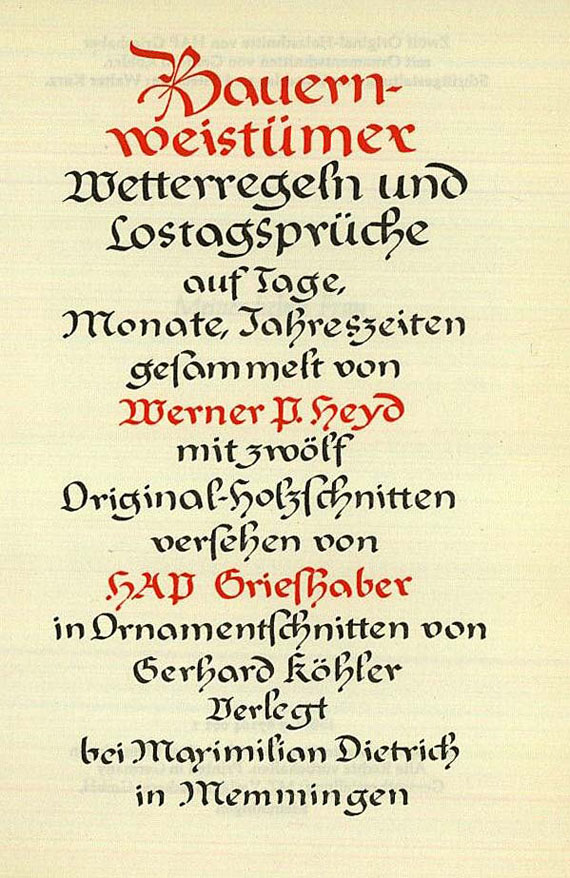 Bauern-
weistümer
Wetterregeln und
Lostagsprüche
auf Tage,
Monate, Jahreszeiten
gesammelt von
Werner P. Heyd
mit zwölf
Original-Holzschnitten
versehen von
HAP Grieshaber
in Ornamentschnitten von
Gerhard Köhler
Verlegt
bei Maximilian Dietrich
in Memmingen